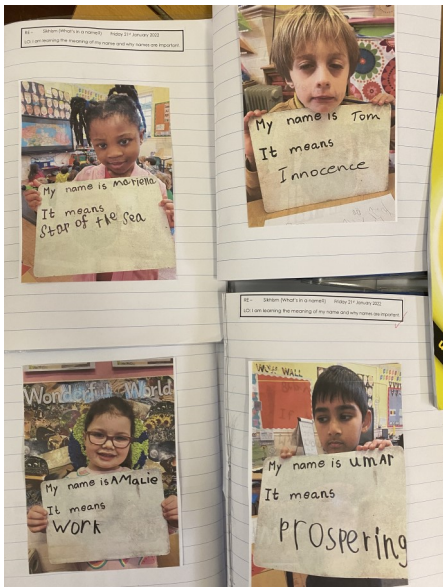 RE - Sikhism (What's in a name?) Friday 21st January 2022
LO: I am learning the meaning of my name and why names are important.
My name is mariella
It means
Star of the Sea
My name is Tom
It means
Innocence
RE - Sikhism (What's in a name?) Friday 21st January 2022
LO: I am learning the meaning of my name and why names are important.
Wonderful World
My name is AMaLie
It means
Work
WALL
My name is umAr
It means
prospering